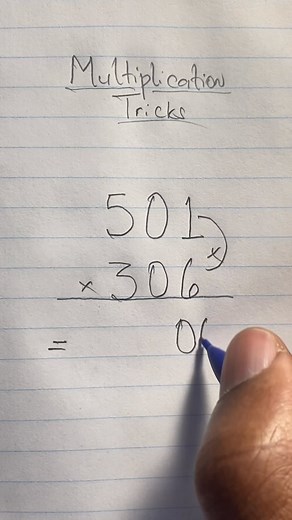 Multiplication
Tricks
501
x
× 306
= 0